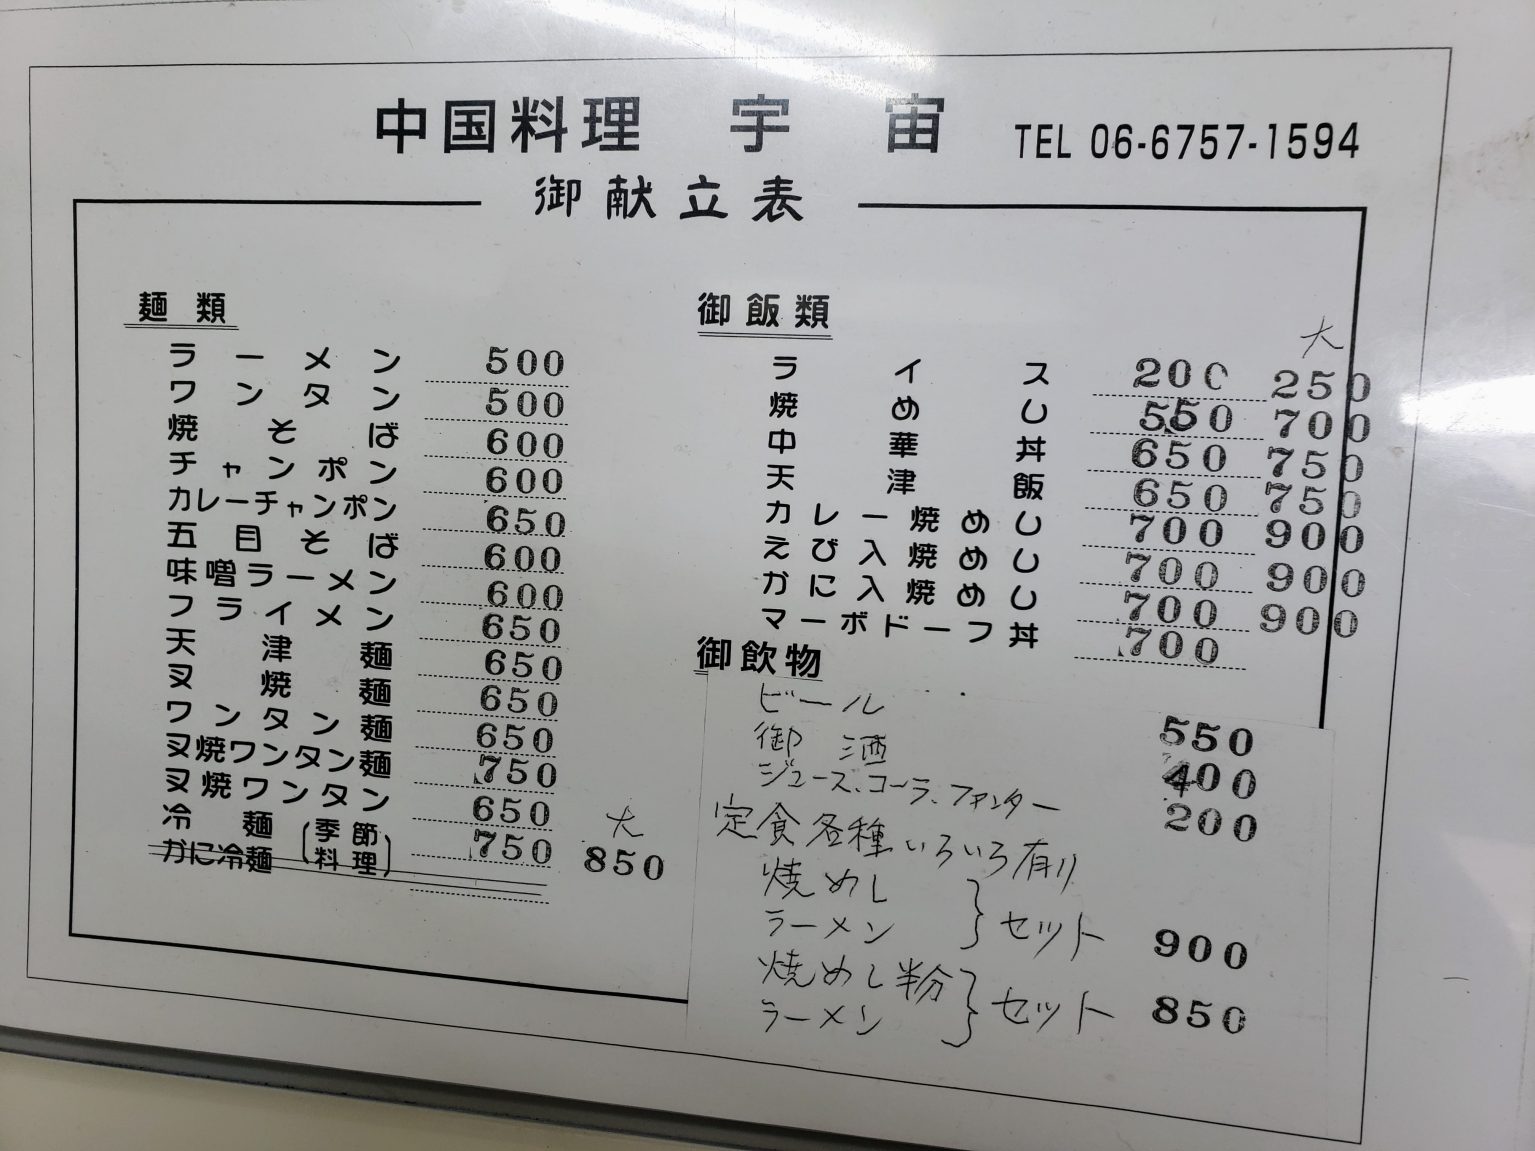 中国料理 宇宙 TEL 06-6757-1594
御献立表
麺類
ラーメン 500
ワンタン 500
焼そば 600
チャンポン 600
カレーチャンポン 650
五目そば 600
味噌ラーメン 600
フライメン 650
天津麺 650
叉焼麺 650
ワンタン麺 650
叉焼ワンタン麺 750
叉焼ワンタン 650
大
冷麺(季節料理) 750 850
かに冷麺
御飯類
大
ライス 200 250
焼めし 550 700
中華丼 650 750
天津飯 650 750
カレー焼めし 700 900
えび入焼めし 700 900
かに入焼めし 700 900
マーボドーフ丼 700
御飲物
ビール 550
御酒 400
ジュース、コーラ、ファンター 200
定食各種いろいろ有り
焼めし
ラーメン } セット 900
焼めし半分
ラーメン } セット 850